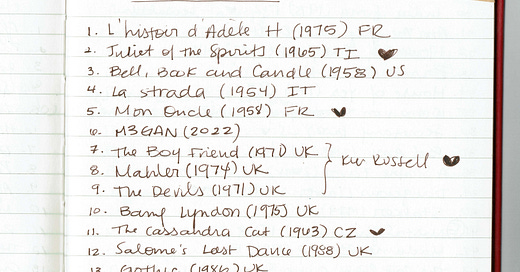 1. L'histoir d'Adèle H (1975) FR
2. Juliet of the Spirits (1965) TI ♥
3. Bell, Book and Candle (1958) US
4. La strada (1954) IT
5. Mon Oncle (1958) FR ♥
6. M3GAN (2022)
7. The Boy Friend (1971) UK
8. Mahler (1974) UK } Ken Russell ♥
9. The Devils (1971) UK
10. Barry Lyndon (1975) UK
11. The Cassandra Cat (1963) CZ ♥
12. Salome's Last Dance (1988) UK
13. Gothic (1986) UK